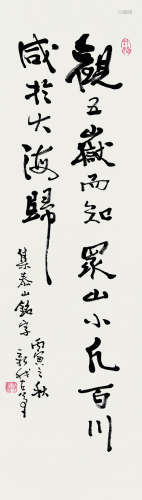 觀五嶽而知眾山小凡百川
咸於大海歸
集泰山銘字
丙寅之秋